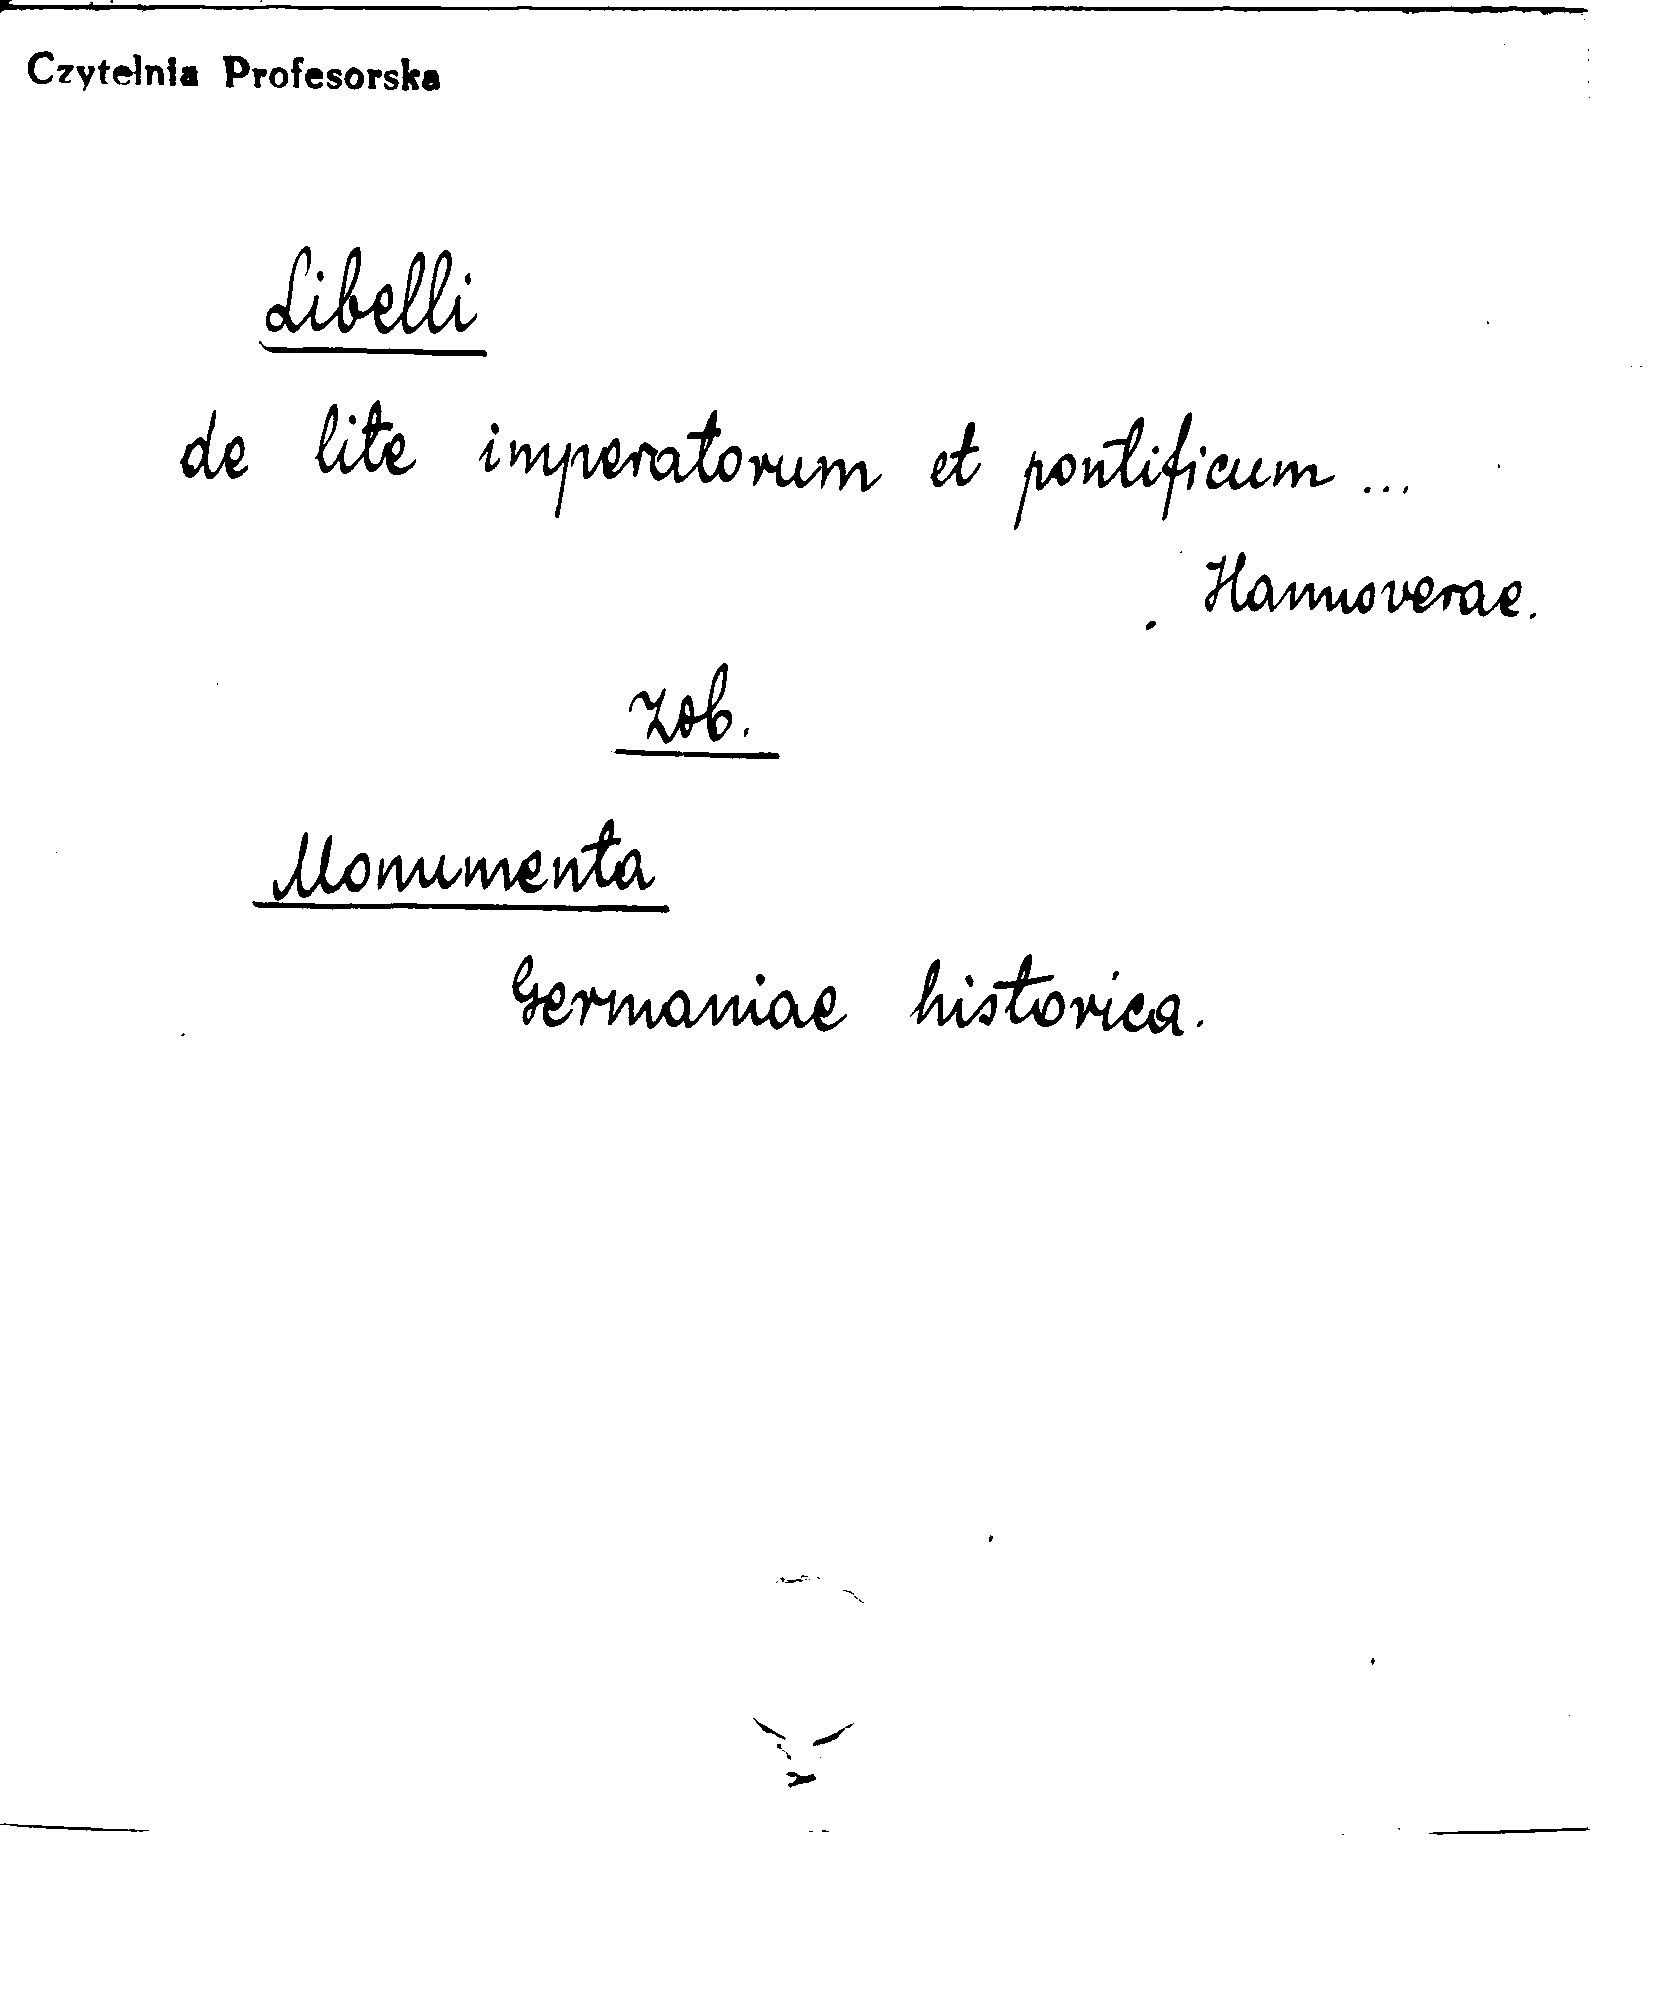 Czytelnia Profesorska
Libelli
de lite imperatorum et pontificum ...
Hannoverae.
Zob.
Monumenta
Germaniae historica.